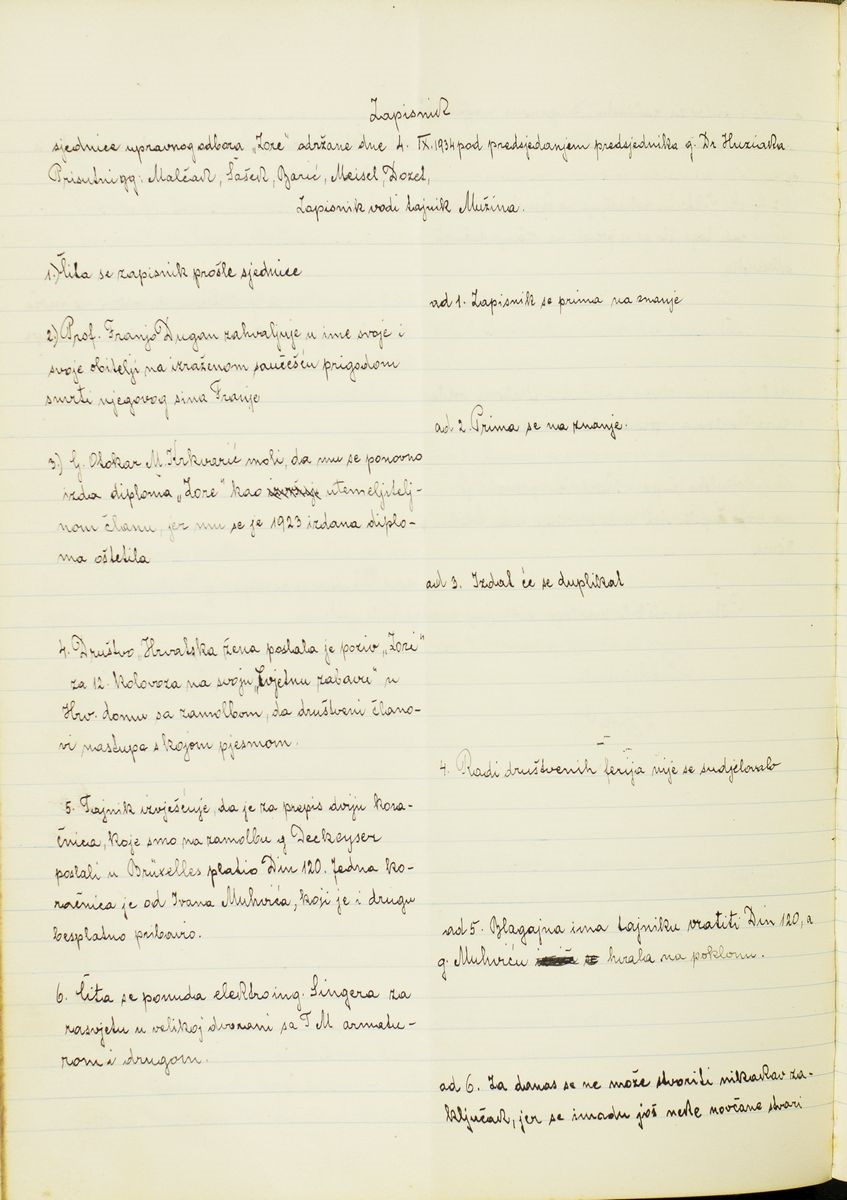 Zapisnik
sjednice upravnog odbora „Zore" održane dne 4. IX. 1934 pod predsjedanjem predsjednika g. Dr Huziaka
Prisutni gg: Malčak, Šašek, Barić, Meisel, Dozet,
Zapisnik vodi tajnik Mužina.
1.) Čita se zapisnik prošle sjednice
ad 1. Zapisnik se prima na znanje
2) Prof. Franjo Dugan zahvaljuje u ime svoje i
svoje obitelji na izraženom saučešću prigodom
smrti njegovog sina Franje
ad 2. Prima se na znanje.
3.) G. Otokar M. Krkvarić moli, da mu se ponovno
izda diploma „Zore" kao utemeljitelj-
nom članu, jer mu se je 1923 izdana diplo-
ma oštetila
ad 3. Izdat će se duplikat
4. Društvo „Hrvatska žena poslala je poziv „Zori"
za 12. kolovoza na svoju „Cvjetnu zabavu" u
Hrv. domu sa zamolbom, da društveni člano-
vi nastupe s kojom pjesmom.
4. Radi društvenih ferija nije se sudjelovalo
5. Tajnik izvješćuje, da je za prepis dviju kora-
čnica, koje smo na zamolbu g Deckeyser
poslali u Brüxelles platio Din 120. Jedna ko-
račnica je od Ivana Muhvića, koji je i drugu
besplatno pribavio.
ad 5. Blagajna ima tajniku vratiti Din 120, a
g. Muhviću hvala na poklonu.
6. Čita se ponuda elektroing. Singera za
rasvjetu u velikoj dvorani sa T M armatu-
rom i drugom.
ad 6. Za danas se ne može stvoriti nikakav za-
ključak, jer se imadu još neke novčane stvari